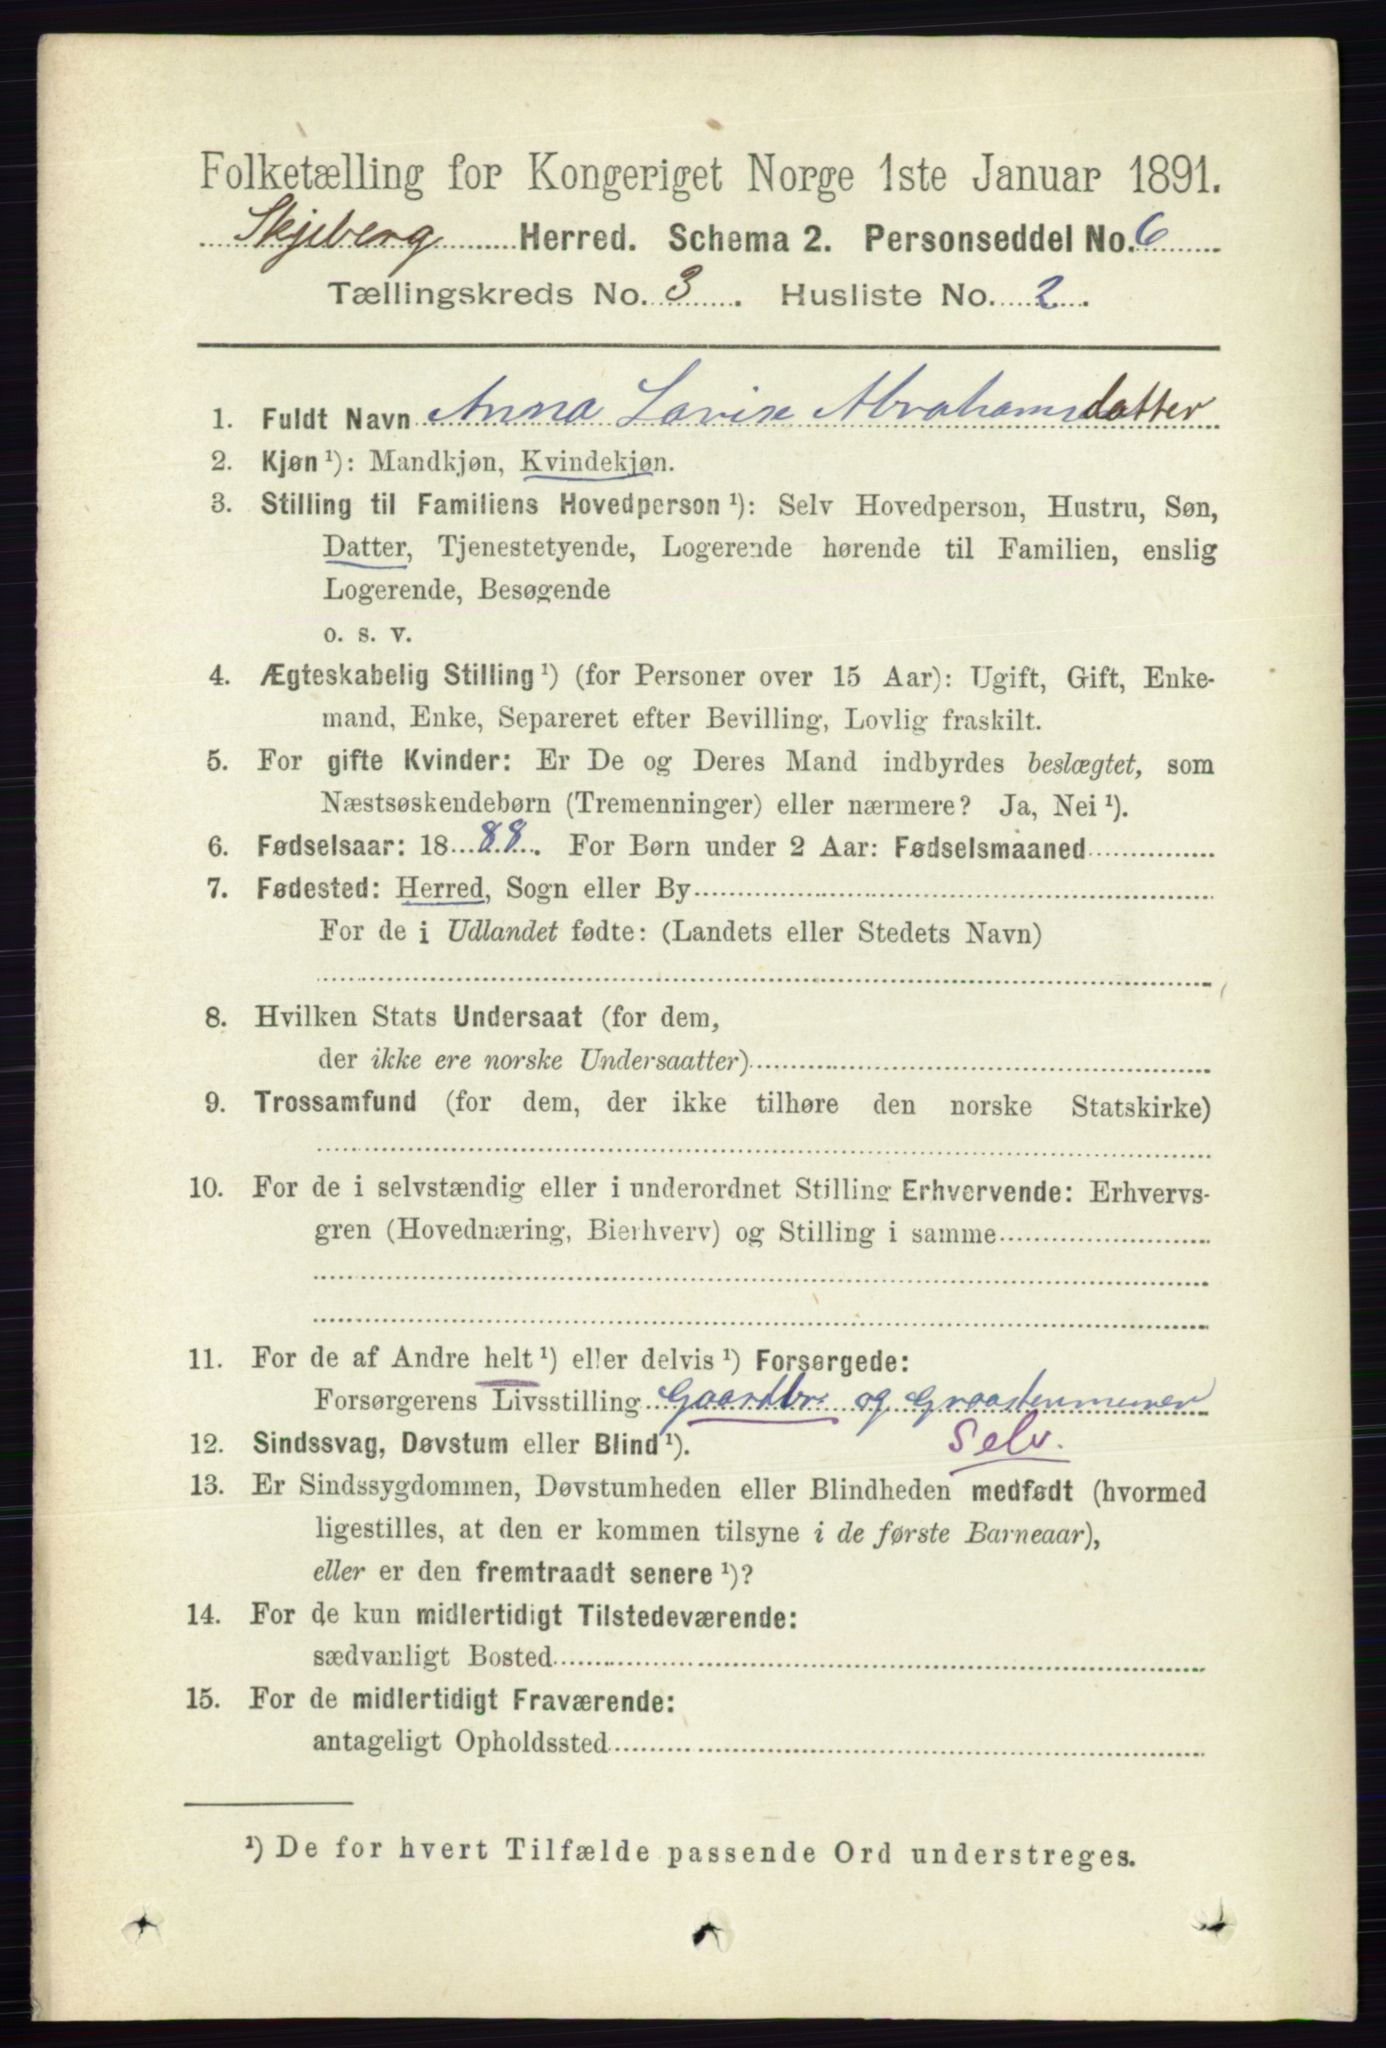 Folketælling for Kongeriget Norge 1ste Januar 1891.
Skjeberg Herred. Schema 2. Personseddel No. 6
Tællingskreds No. 3. Husliste No. 2.
1. Fuldt Navn Anna Lovise Abrahamsdatter
2. Kjøn ¹): Mandkjøn, Kvindekjøn.
3. Stilling til Familiens Hovedperson ¹): Selv Hovedperson, Hustru, Søn,
Datter, Tjenestetyende, Logerende hørende til Familien, enslig
Logerende, Besøgende
o. s. v.
4. Ægteskabelig Stilling ¹) (for Personer over 15 Aar): Ugift, Gift, Enke-
mand, Enke, Separeret efter Bevilling, Lovlig fraskilt.
5. For gifte Kvinder: Er De og Deres Mand indbyrdes beslægtet, som
Næstsøskendebørn (Tremenninger) eller nærmere? Ja, Nei ¹).
6. Fødselsaar: 1888. For Børn under 2 Aar: Fødselsmaaned
7. Fødested: Herred, Sogn eller By
For de i Udlandet fødte: (Landets eller Stedets Navn)
8. Hvilken Stats Undersaat (for dem,
der ikke ere norske Undersaatter)
9. Trossamfund (for dem, der ikke tilhøre den norske Statskirke)
10. For de i selvstændig eller i underordnet Stilling Erhvervende: Erhvervs-
gren (Hovednæring, Bierhverv) og Stilling i samme
11. For de af Andre helt ¹) eller delvis ¹) Forsørgede:
Forsørgerens Livsstilling Gaardbr. og Graastenmurer
12. Sindssvag, Døvstum eller Blind ¹). Selv.
13. Er Sindssygdommen, Døvstumheden eller Blindheden medfødt (hvormed
ligestilles, at den er kommen tilsyne i de første Barneaar),
eller er den fremtraadt senere ¹)?
14. For de kun midlertidigt Tilstedeværende:
sædvanligt Bosted
15. For de midlertidigt Fraværende:
antageligt Opholdssted
¹) De for hvert Tilfælde passende Ord understreges.